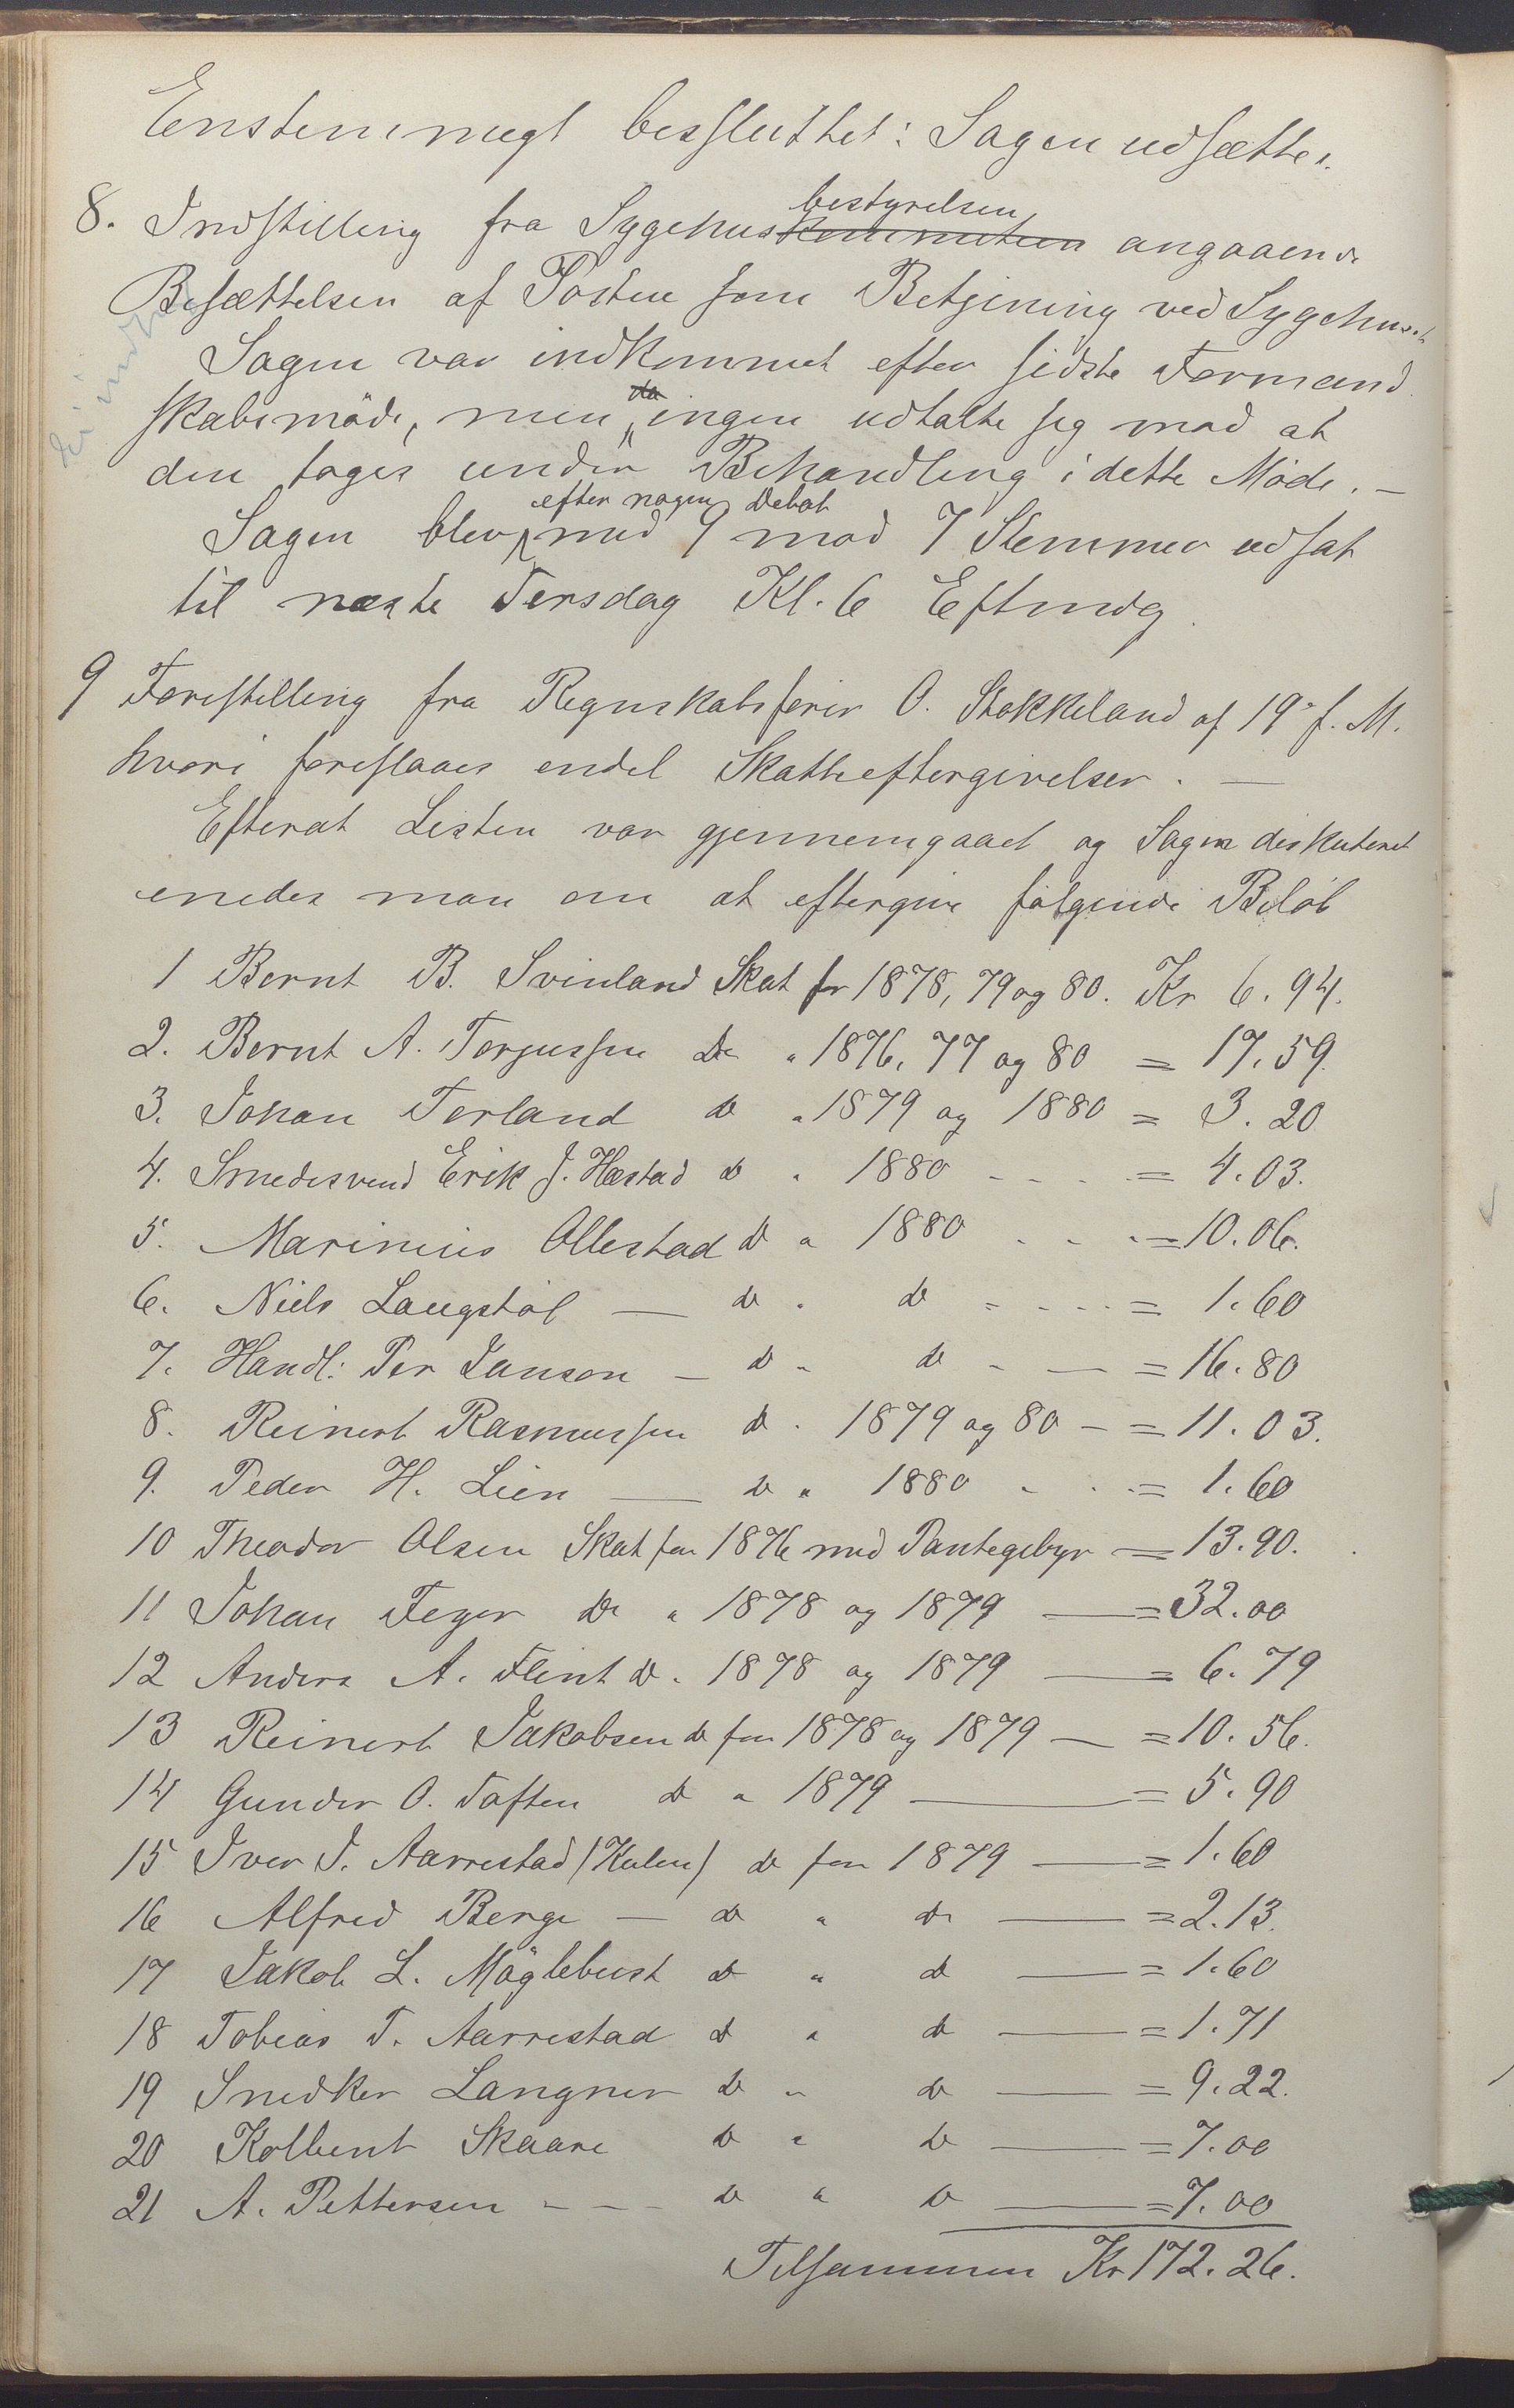 Enstemmegt beslluttet: Sagen udsættes.
8. Indstilling fra Sygehuskommiteen bestyrelsen angaaende
Besættelsen af Posten som Betjening ved Sygehuset
Sagen var indkommet efter sidste Formand
skabsmöde, men da ingen udtalte sig mod at
den toges under Behandling i dette Möde. —
Sagen blev efter nogen Debat med 9 mod 7 Stemmer udsat
til næste Torsdag Kl. 6 Eftmdg.
9 Forestilling fra Regnskabsförer O. Stokkeland af 19. f. M.
hvori foreslaaes endel Skatteeftergivelser. —
Efterat Listen var gjennemgaaet og Sagen diskuteret
enedes man om at eftergive fölgende Belöb
1 Bernt B. Svinland Skat for 1878, 79 og 80. Kr 6.94.
2. Bernt A. Torjussen do " 1876, 77 og 80 = 17.59.
3. Johan Torland do " 1879 og 1880 = 3.20
4. Smedesvend Erik J. Hæstad do " 1880 - - - = 4.03.
5. Marinius Ollestad do " 1880 - - - = 10.06.
6. Niels Langstöl — do " do - - - - = 1.60
7. Handl: Per Janson — do " do - — = 16.80
8. Reinert Rasmussen do " 1879 og 80 - = 11.03.
9. Peder H. Lien — do " 1880 - - - = 1.60
10 Theodor Olsen Skat for 1876 med Pantegebyr = 13.90.
11 Johan Feger do " 1878 og 1879 — = 32.00
12 Anders A. Flint do " 1878 og 1879 — = 6.79
13 Reinert Jakobsen do for 1878 og 1879 — = 10.56.
14 Gunder O. Toften do " 1879 — = 5.90
15 Iver I. Aarrestad (Kulen) do for 1879 — = 1.60
16 Alfred Berge — do " do — = 2.13.
17 Jakob L. Möglebust do " do — = 1.60
18 Tobias T. Aarrestad do " do — = 1.71
19 Snedker Langner do " do — = 9.22.
20 Kolbent Skaare do " do — = 7.00
21 A. Pettersen - - - do " do — = 7.00
Tilsammen Kr 172.26.